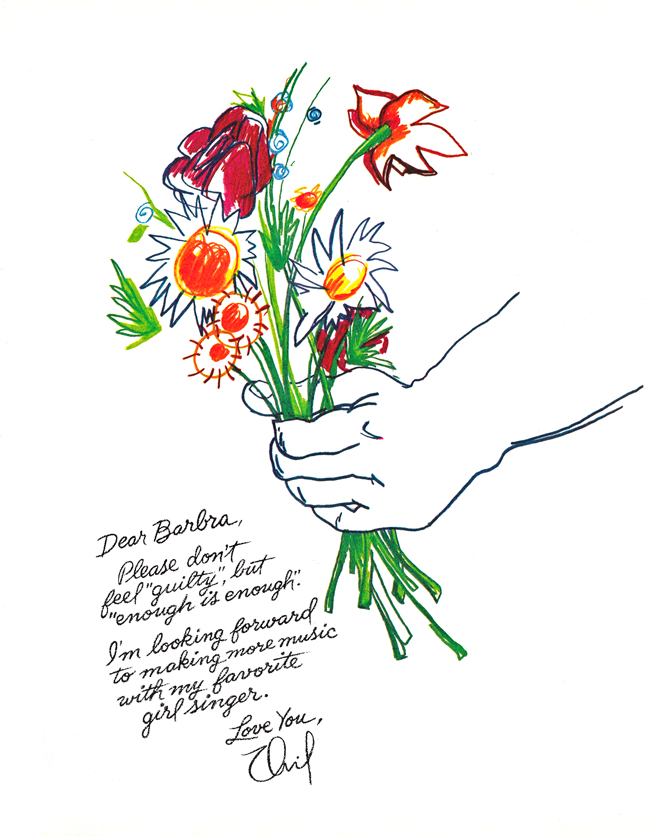 Dear Barbra,
Please don't
feel "guilty", but
"enough is enough".
I'm looking forward
to making more music
with my favorite
girl singer.
Love You,